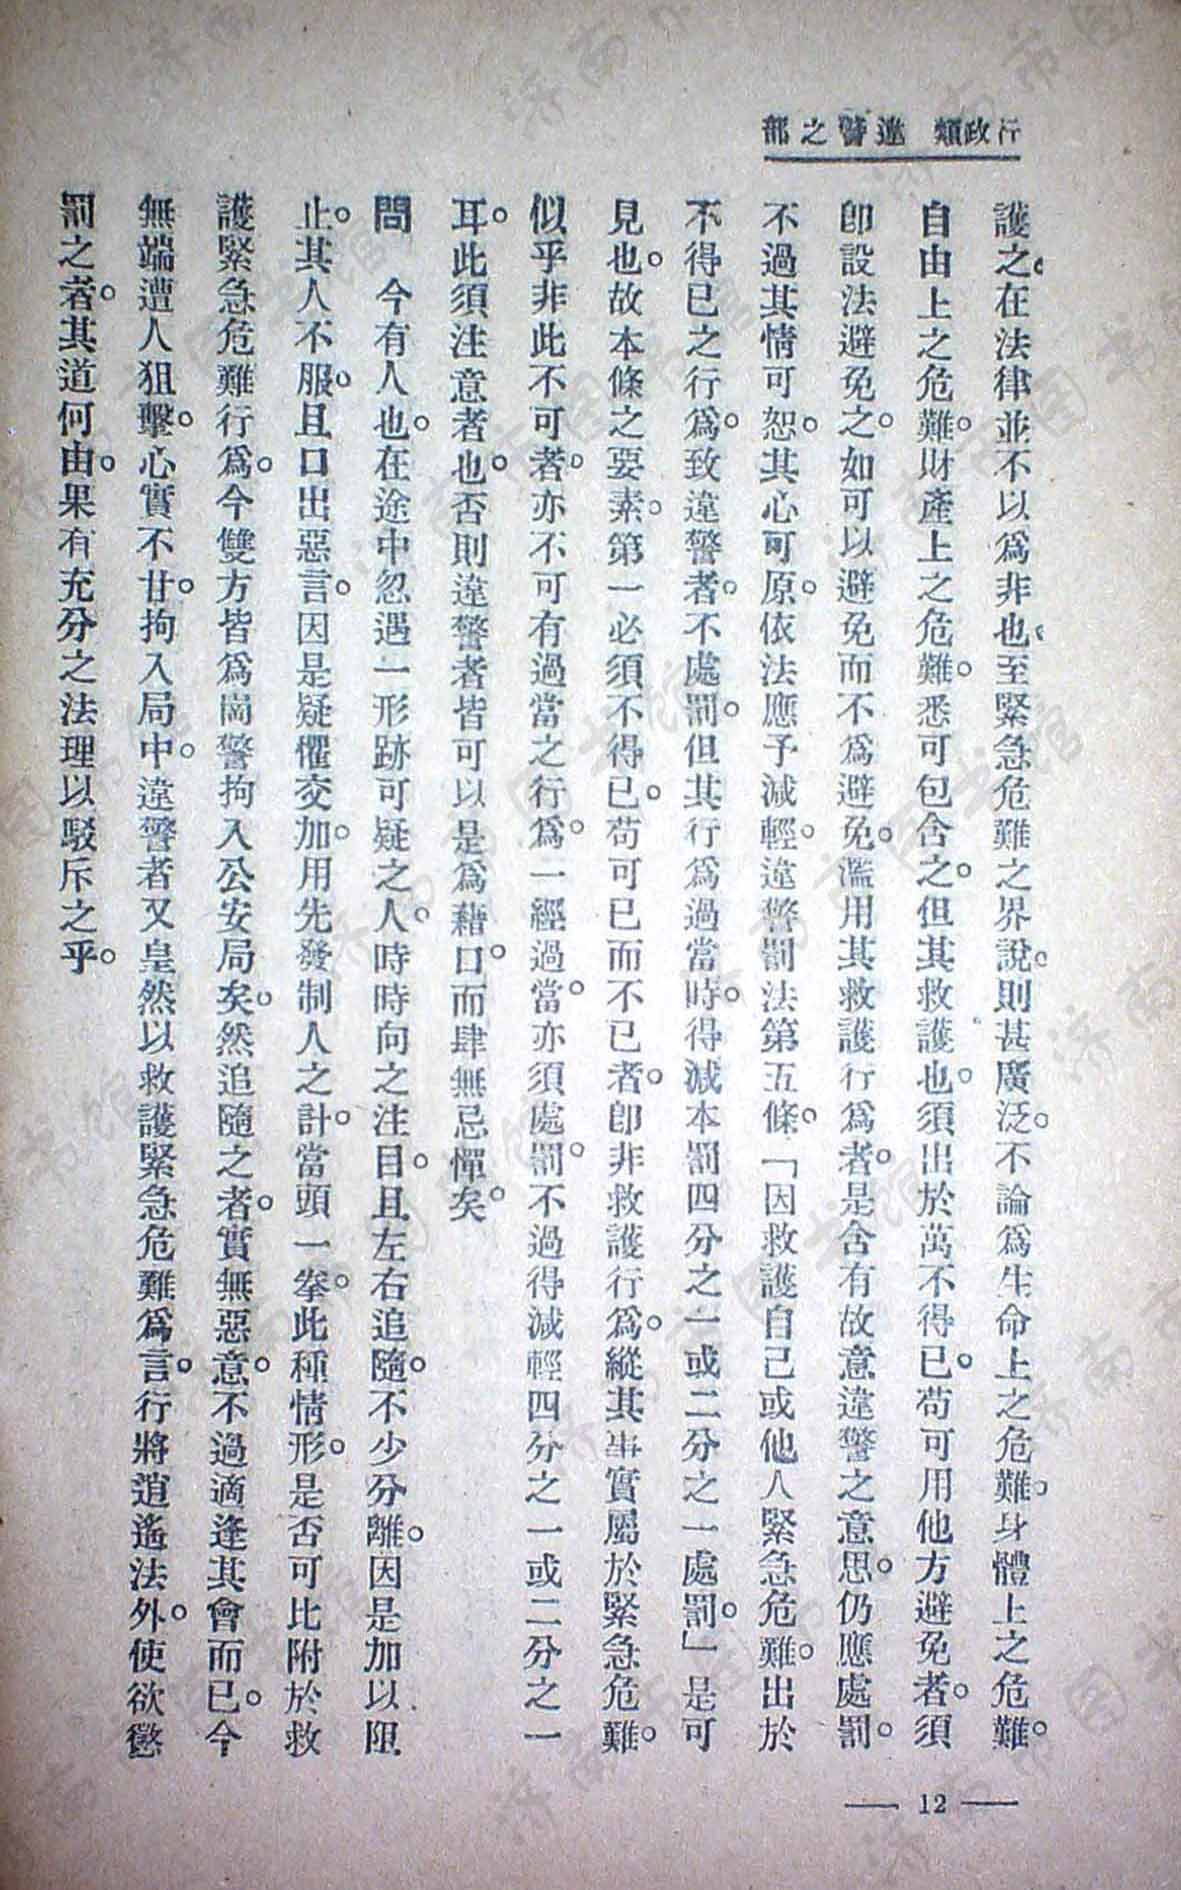 行政類 違警之部
護之。在法律並不以爲非也。至緊急危難之界說。則甚廣泛。不論爲生命上之危難。身體上之危難。
自由上之危難。財產上之危難。悉可包含之。但其救護也。須出於萬不得已。苟可用他方避免者。須
卽設法避免之。如可以避免而不爲避免。濫用其救護行爲者。是含有故意違警之意思。仍應處罰。
不過其情可恕。其心可原。依法應予減輕。違警罰法第五條。「因救護自己或他人緊急危難。出於
不得已之行爲。致違警者。不處罰。但其行爲過當時。得減本罰四分之一或二分之一處罰。」是可
見也。故本條之要素。第一必須不得已。苟可已而不已者。卽非救護行爲。縱其事實屬於緊急危難。
似乎非此不可者。亦不可有過當之行爲。一經過當。亦須處罰。不過得減輕四分之一或二分之一
耳。此須注意者也。否則違警者皆可以是爲藉口。而肆無忌憚矣。
問　今有人也。在途中忽遇一形跡可疑之人。時時向之注目。且左右追隨。不少分離。因是加以阻
止。其人不服。且口出惡言。因是疑懼交加。用先發制人之計。當頭一拳。此種情形。是否可比附於救
護緊急危難行爲。今雙方皆爲崗警拘入公安局矣。然追隨之者。實無惡意。不過適逢其會而已。今
無端遭人狙擊。心實不甘。拘入局中。違警者又皇然以救護緊急危難爲言。行將逍遙法外。使欲懲
罰之者。其道何由。果有充分之法理以駁斥之乎。
— 12 —
济南市图书馆